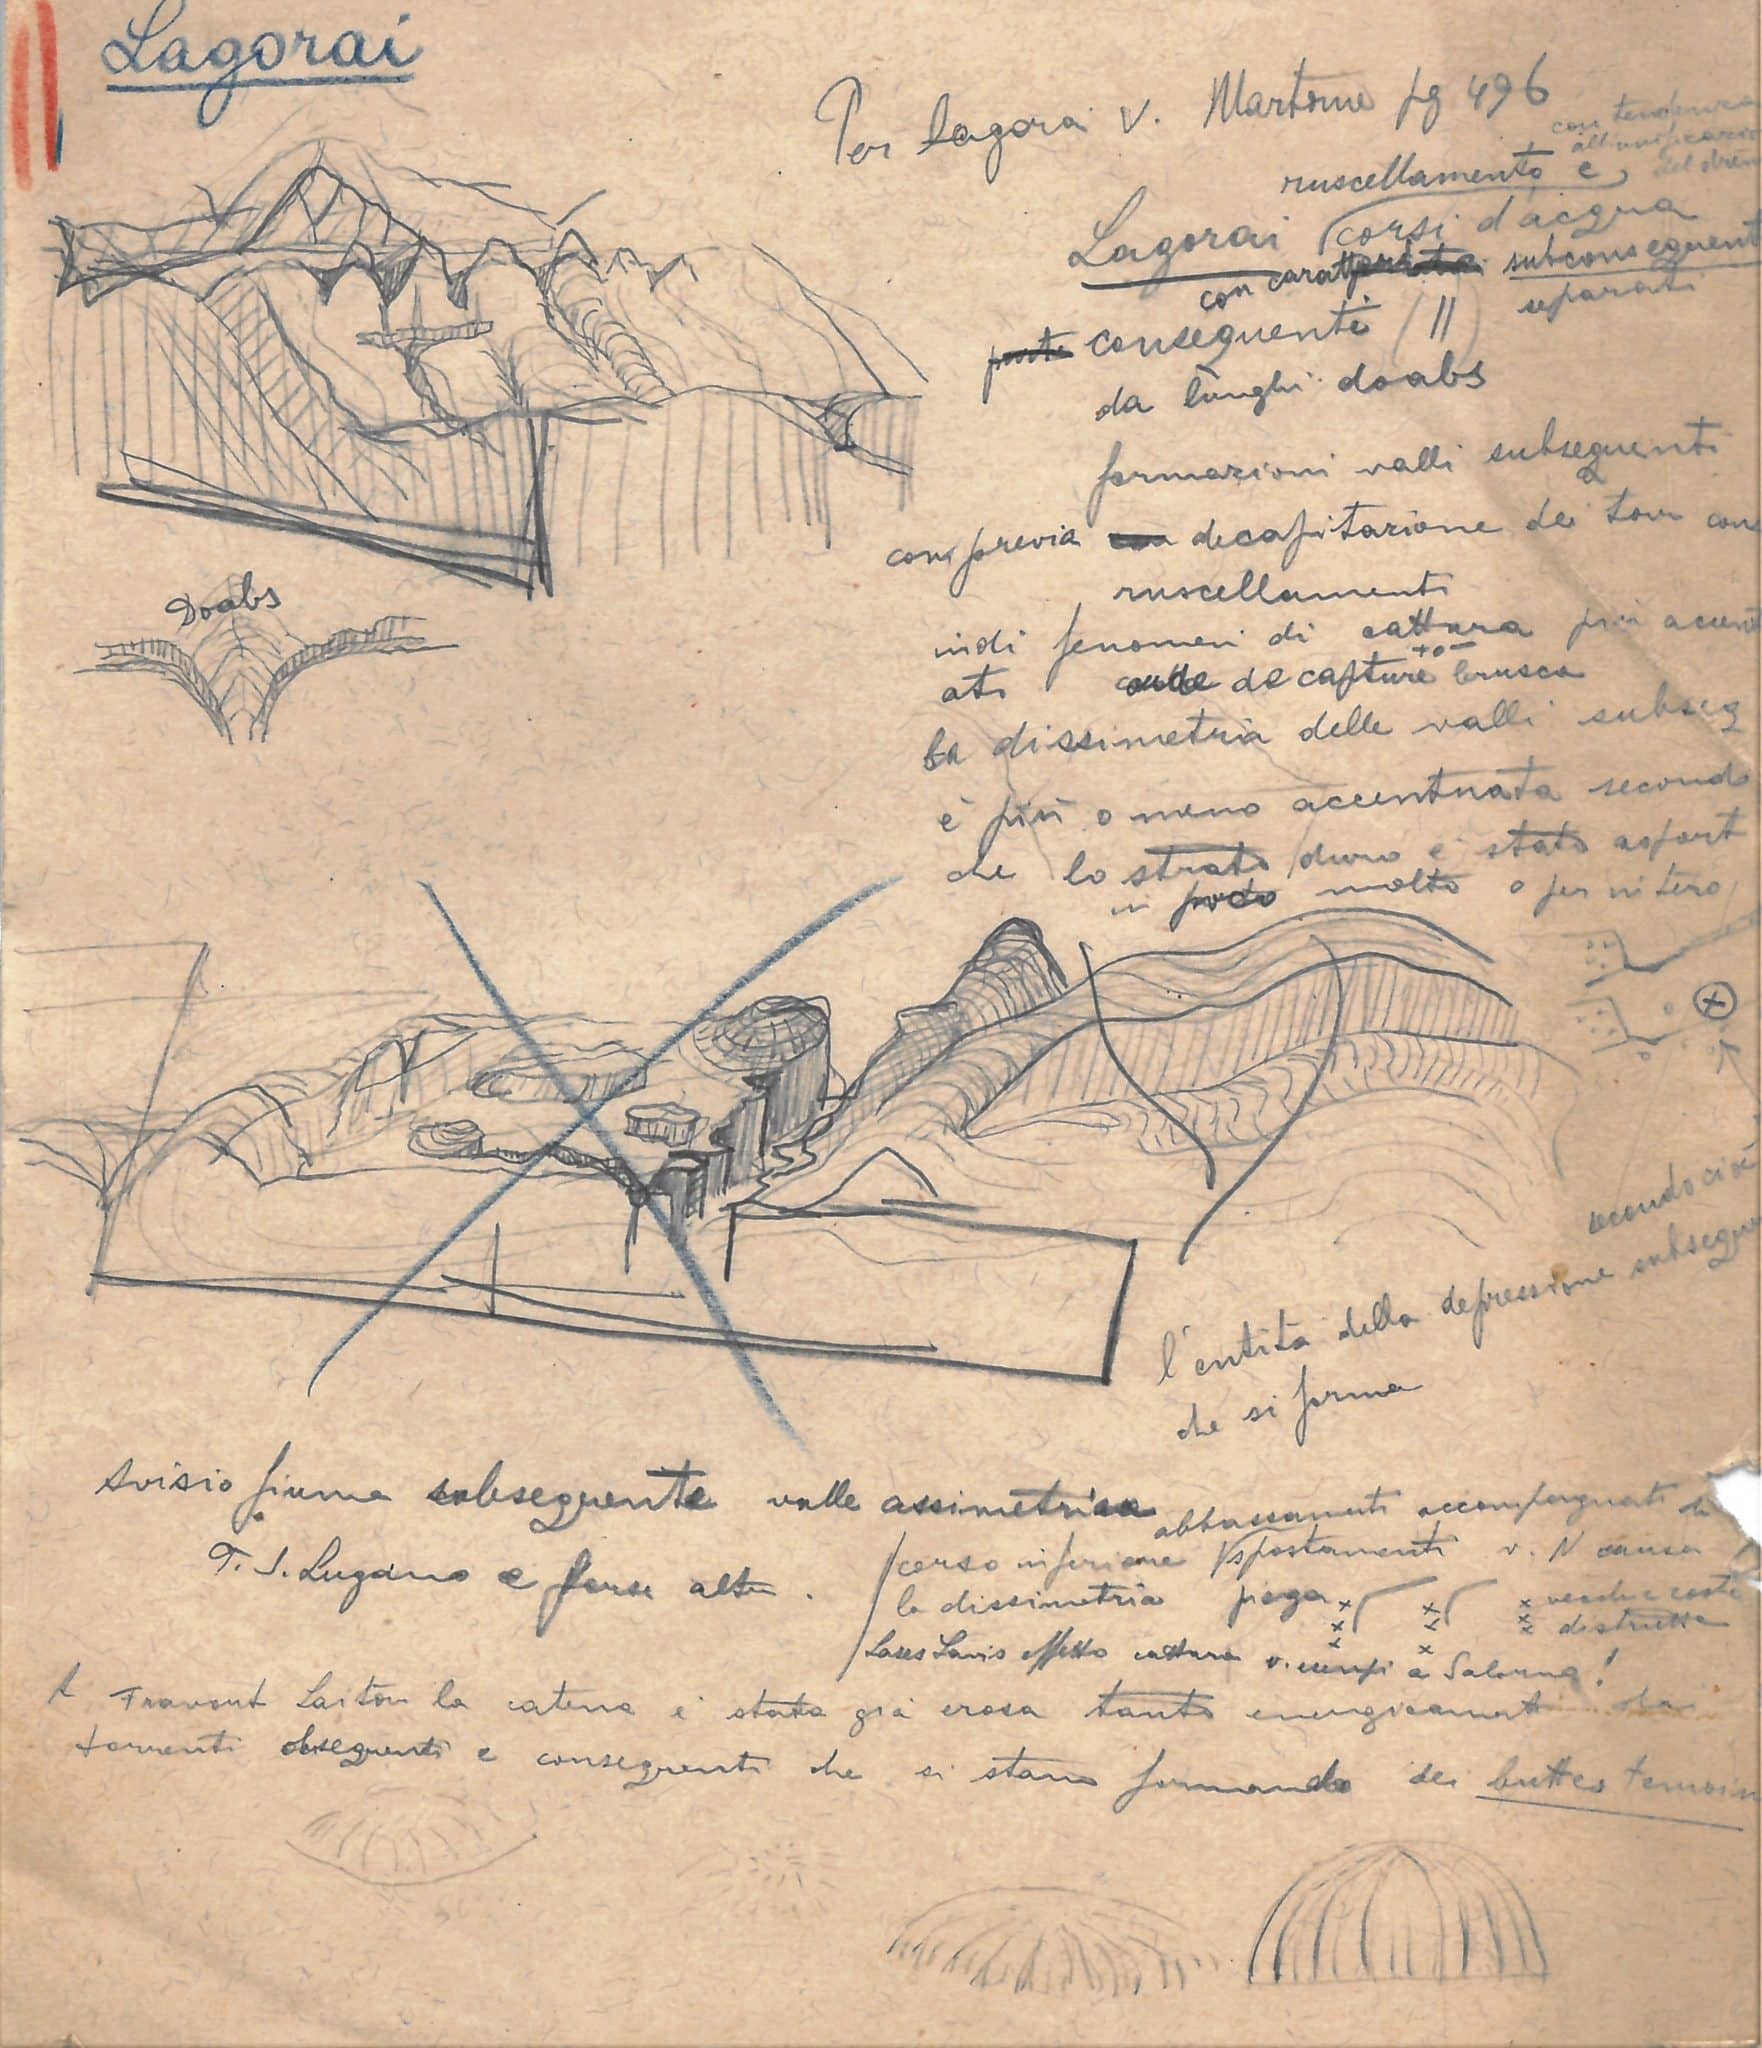 Lagorai
Per Lagorai v. Martonne pg 496
con tendenza
all'unificazio
del dren
ruscellamento e
Lagorai corsi d'acqua
con caratteri subconseguent
conseguenti // separati
da lunghi doabs
Doabs
formazioni valli subseguenti
con previa decapitazione dei torr con
ruscellamenti
indi fenomeni di cattura più accent
ati de capture brusca
+ o -
la dissimetria delle valli subseg
è più o meno accentuata secondo
che lo strato duro è stato asport
in poco molto o per intero
secondo ciò
l'entità della depressione subsegue
che si forma
Avisio fiume subseguente valle assimetrica
T. S. Lugano e forse altri.
abbassamenti accompagnati da
corso inferiore spostamenti v. N causa
la dissimetria piega vecchie coste
distrutte
Lases Lavis effetto cattura v. cempi a Salorno!
A Fravort la catena è stata già erosa tanto energicament dai
torrenti obseguenti e conseguenti che si stano formando dei buttes temoin